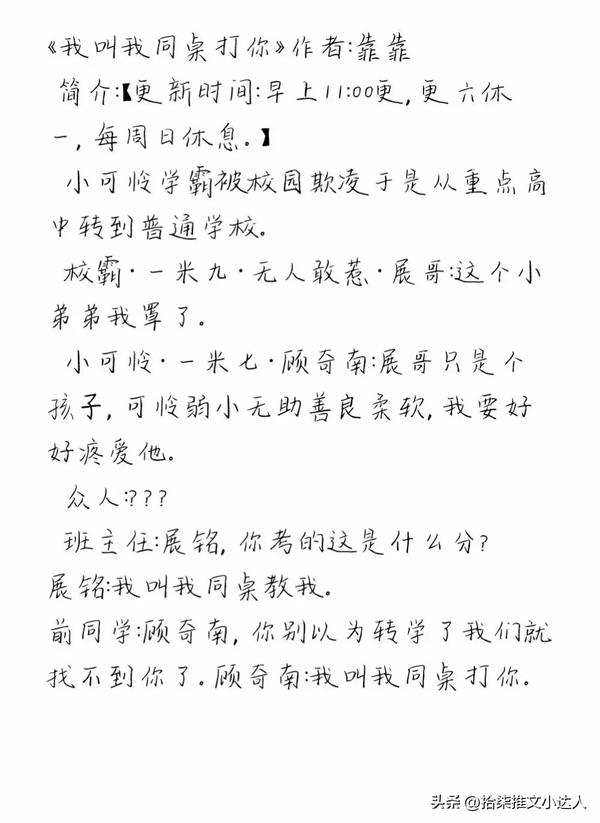 《我叫我同桌打你》作者:靠靠
简介:【更新时间:早上11:00更,更六休
一,每周日休息。】
小可怜学霸被校园欺凌于是从重点高
中转到普通学校。
校霸·一米九·无人敢惹·展哥:这个小
弟弟我罩了。
小可怜·一米七·顾奇南:展哥只是个
孩子,可怜弱小无助善良柔软,我要好
好疼爱他。
众人:???
班主任:展铭,你考的这是什么分?
展铭:我叫我同桌教我。
前同学:顾奇南,你别以为转学了我们就
找不到你了。顾奇南:我叫我同桌打你。
头条 @拾柒推文小达人